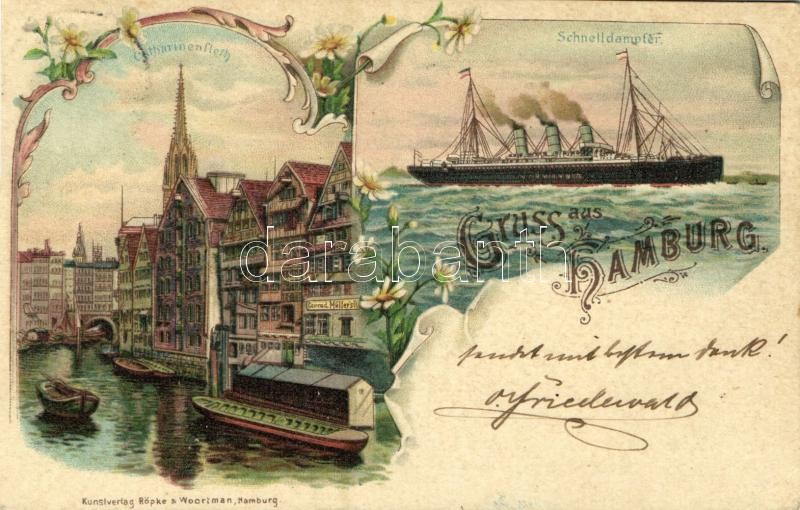 Catharinenfleth
Schnelldampfer.
Gruss aus
HAMBURG.
darabanth
Conrad Müller
sendet mit bestem Dank!
Friedewald
Kunstverlag Röpke & Woortman, Hamburg.